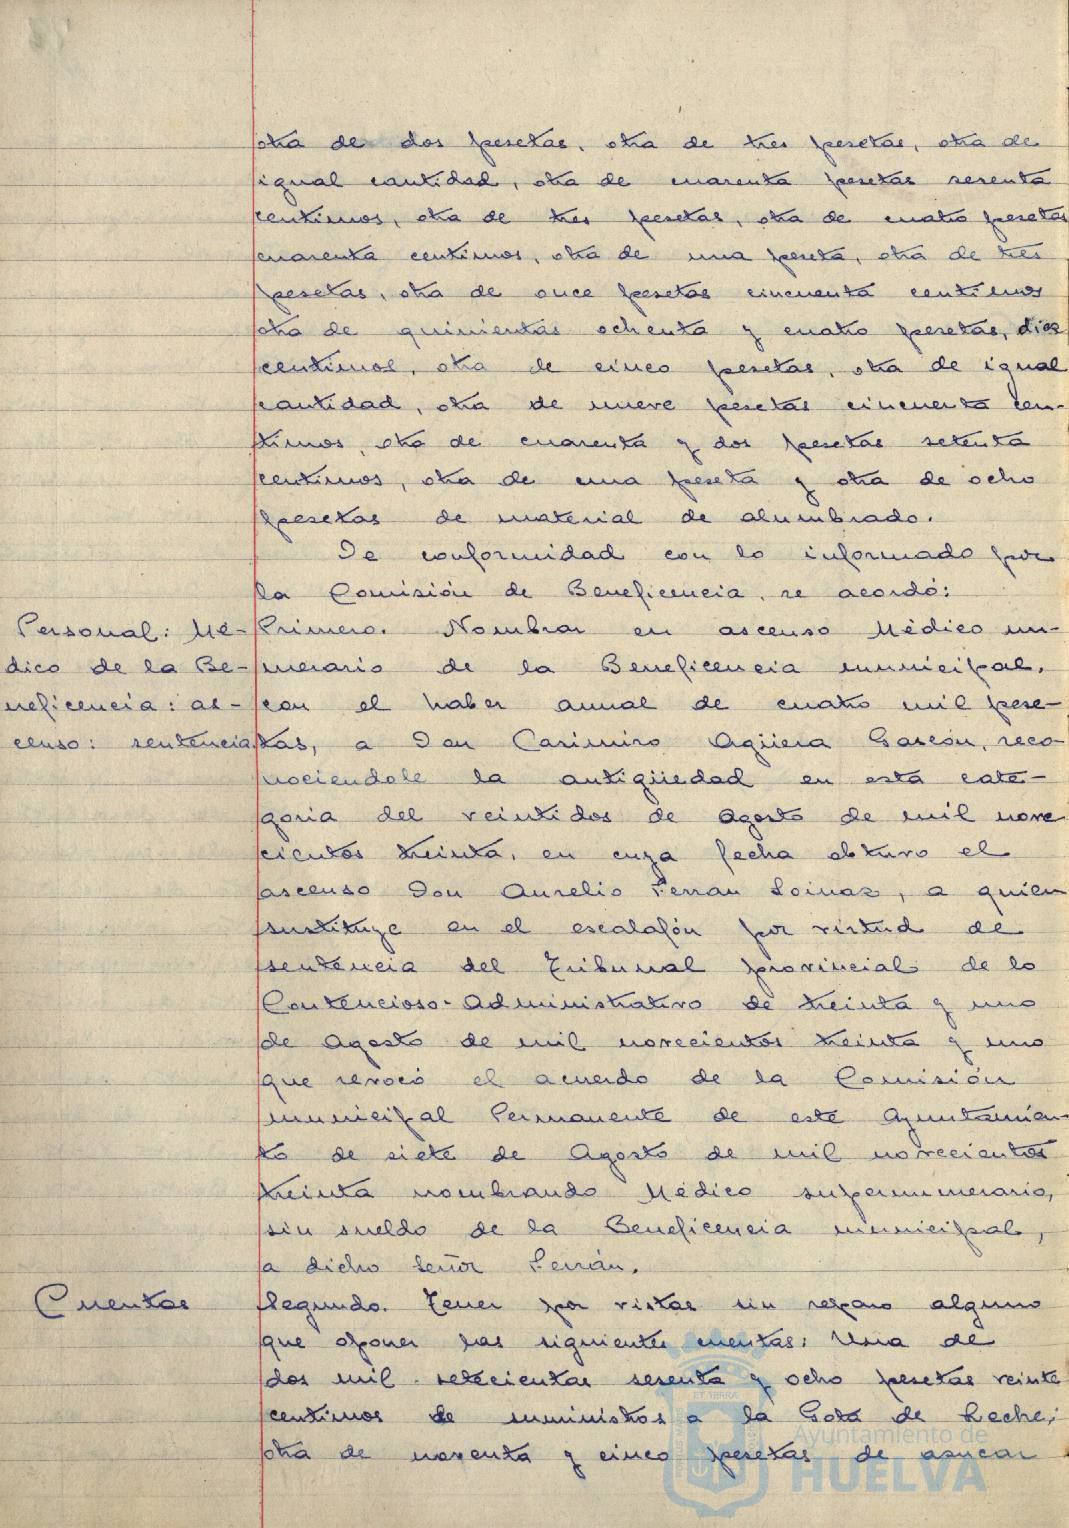 otra de dos pesetas, otra de tres pesetas, otra de
igual cantidad, otra de cuarenta pesetas sesenta
centimos, otra de tres pesetas, otra de cuatro pesetas
cuarenta centimos, otra de una peseta, otra de tres
pesetas, otra de once pesetas cincuenta centimos
otra de quinientas ochenta y cuatro pesetas, diez
centimos, otra de cinco pesetas, otra de igual
cantidad, otra de nueve pesetas cincuenta cen-
timos, otra de cuarenta y dos pesetas setenta
centimos, otra de una peseta y otra de ocho
pesetas de material de alumbrado.
De conformidad con lo informado por
la Comisión de Beneficencia, se acordó:
Personal: Mé-
dico de la Be-
neficencia: as-
censo: sentencia.
Primero. Nombrar en ascenso Médico nu-
merario de la Beneficencia municipal,
con el haber anual de cuatro mil pese-
tas, a Don Casimiro Agüera Gascón, reco-
nociendole la antigüedad en esta cate-
goria del veintidos de Agosto de mil nove
cientos treinta, en cuya fecha obtuvo el
ascenso Don Aurelio Ferran Loinaz, a quien
sustituye en el escalafón por virtud de
sentencia del Tribunal provincial de lo
Contencioso-Administrativo de treinta y uno
de Agosto de mil novecientos treinta y uno
que revocó el acuerdo de la Comisión
municipal Permanente de este Ayuntamien-
to de siete de Agosto de mil novecientos
treinta nombrando Médico supernumerario,
sin sueldo de la Beneficencia municipal,
a dicho Señor Ferrán.
Cuentas
Segundo. Tener por vistas sin reparo alguno
que oponer las siguientes cuentas: Una de
dos mil setecientas sesenta y ocho pesetas veinte
centimos de suministros a la Gota de Leche;
otra de noventa y cinco pesetas de azucar
Ayuntamiento de
HUELVA